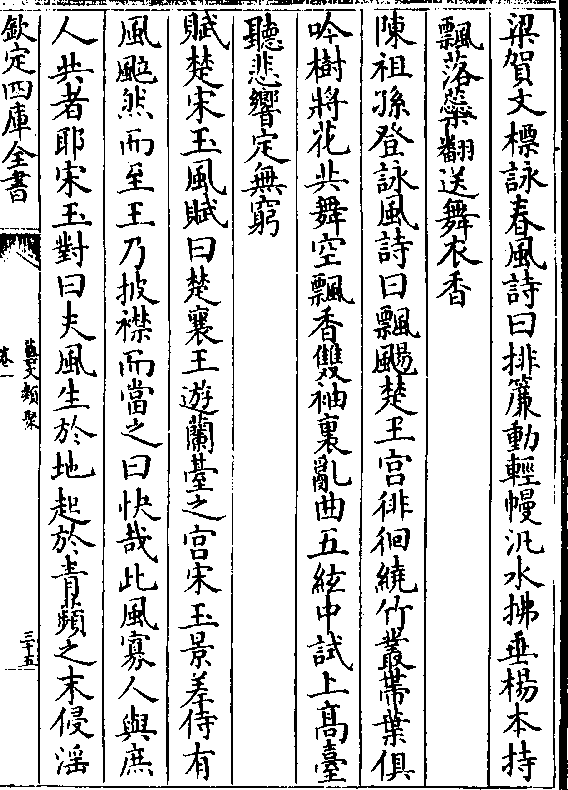 梁賀文標詠春風詩曰排簾動輕幔汎水拂垂楊本持
飄落蘂翻送舞衣香
陳祖孫登詠風詩曰飄颺楚王宫徘徊繞竹叢帶葉俱
吟樹將花共舞空飄香雙袖裏亂曲五絃中試上髙臺
聽悲響定無窮
賦楚宋玉風賦曰楚襄王遊蘭臺之宫宋玉景差侍有
風颯然而至王乃披襟而當之曰快哉此風寡人與庶
人共者耶宋玉對曰夫風生於地起於青蘋之末侵淫
欽定四庫全書
藝文類聚
卷一
三十五